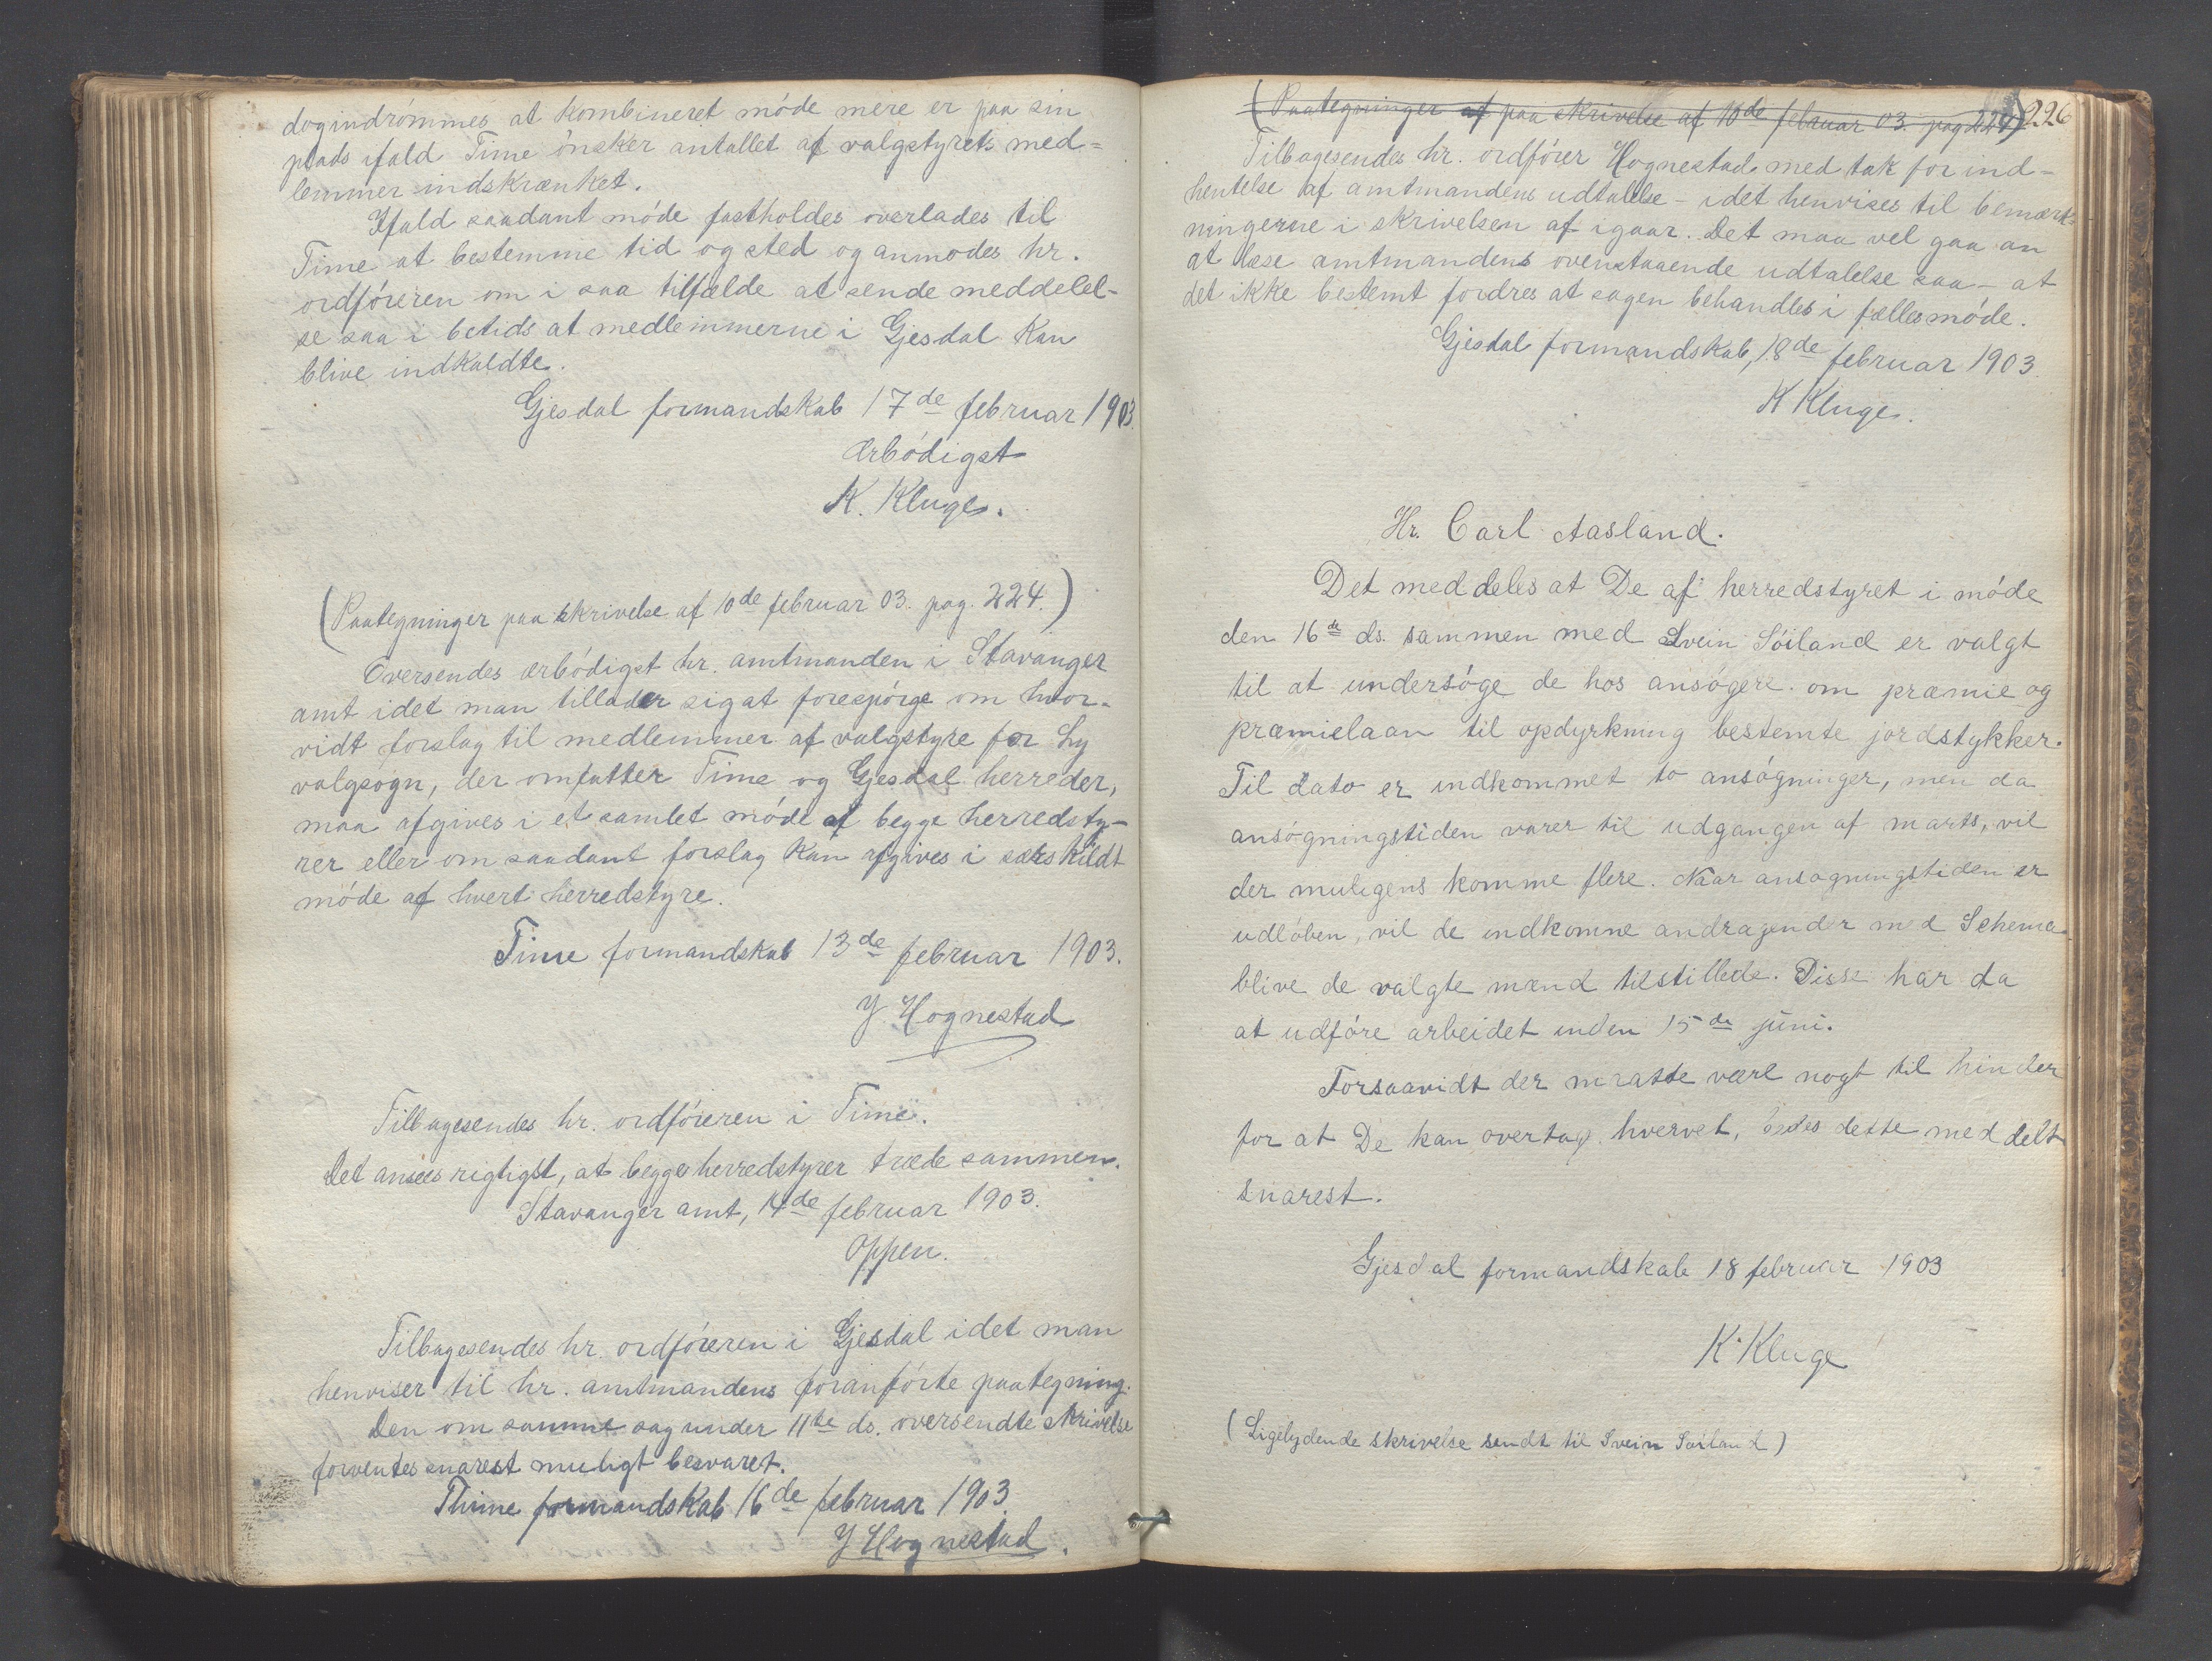 dog indrømmes at kombineret møde mere er paa sin
plads ifald Time ønsker antallet af valgstyrets med-
lemmer indskrænket.
Ifald saadant møde fastholdes overlades til
Time at bestemme tid og sted og anmodes hr.
ordføreren om i saa tilfælde at sende meddelel-
se saa i betids at medlemmerne i Gjesdal kan
blive indkaldte.
Gjesdal formandskab 17de februar 1903.
Ærbødigst
K. Kluge.
(Paategninger paa skrivelse af 10de februar 03. pag. 224.)
Oversendes ærbødigst hr. amtmanden i Stavanger
amt idet man tillader sig at forespørge om hvor-
vidt forslag til medlemmer af valgstyre for Ly
valgsogn, der omfatter Time og Gjesdal herreder,
maa afgives i et samlet møde af begge herredsty-
rer eller om saadant forslag kan afgives i særskildt
møde af hvert herredstyre.
Time formandskab 13de februar 1903.
J Hognestad
Tilbagesendes hr. ordføreren i Time.
Det ansees rigtigst, at begge herredstyrer træde sammen.
Stavanger amt, 14de februar 1903.
Oppen.
Tilbagesendes hr. ordføreren i Gjesdal idet man
henviser til hr. amtmandens foranførte paategning.
Den om samme sag under 11te ds. oversendte skrivelse
forventes snarest muligt besvaret.
Thime formandskab 16de februar 1903.
J Hognestad.
(Paategninger af paa skrivelse af 10de februar 03. pag 224) 226
Tilbagesendes hr. ordfører Hognestad med tak for ind-
hentelse af amtmandens udtalelse - idet henvises til bemærk-
ningerne i skrivelsen af igaar. Det maa vel gaa an
at læse amtmandens ovenstaaende udtalelse saa - at
det ikke bestemt fordres at sagen behandles i fællesmøde.
Gjesdal formandskab, 18de februar 1903.
K Kluge.
Hr. Carl Aasland.
Det meddeles at De af herredstyret i møde
den 16de ds. sammen med Svein Søiland er valgt
til at undersøge de hos ansøgere om præmie og
præmielaan til opdyrkning bestemte jordstykker.
Til dato er indkommet to ansøgninger, men da
ansøgningstiden varer til udgangen af marts, vil
der muligens komme flere. Naar ansøgningstiden er
udløben, vil de indkomne andragender med Schema
blive de valgte mænd tilstillede. Disse har da
at udføre arbeidet inden 15de juni.
Forsaavidt der maatte være nogt til hinder
for at De kan overtage hvervet, bedes dette meddelt
snarest.
Gjesdal formandskab 18 februar 1903
K. Kluge
(Ligelydende skrivelse sendt til Svein Søiland)